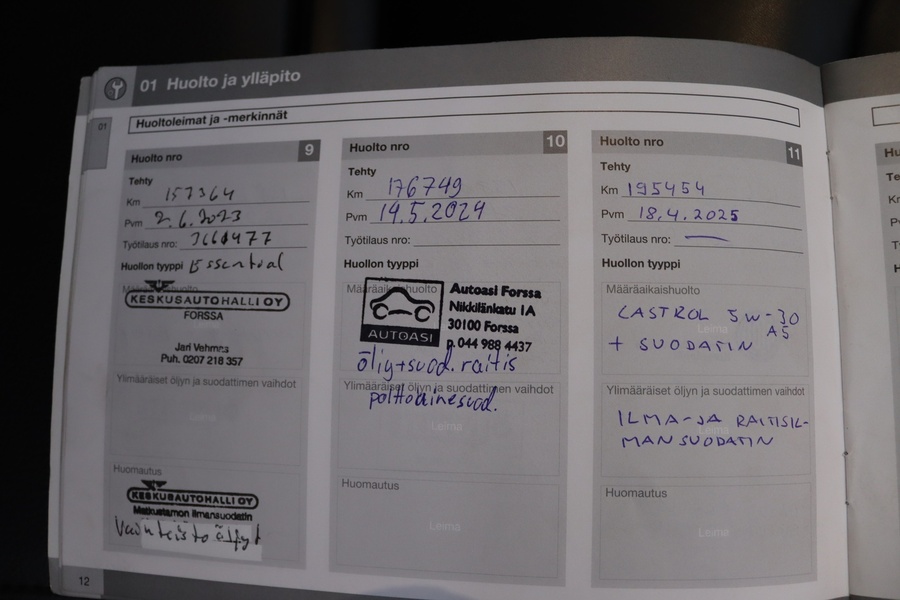 01 Huolto ja ylläpito
01
Huoltoleimat ja -merkinnät
Huolto nro 9
Tehty
Km 157364
Pvm 2.6.2023
Työtilaus nro:
Huollon tyyppi Essential
Määräaikaishuolto
KESKUSAUTOHALLI OY
FORSSA
Jari Vehmas
Puh. 0207 218 357
Ylimääräiset öljyn ja suodattimen vaihdot
Huomautus
KESKUSAUTOHALLI OY
Matkustamon ilmansuodatin
Vaihteistoöljyt
12
Huolto nro 10
Tehty
Km 176749
Pvm 14.5.2024
Työtilaus nro:
Huollon tyyppi
Määräaikaishuolto
AUTOASI
Autoasi Forssa
Nikkilänkatu 1A
30100 Forssa
p. 044 988 4437
öljy+suod. raitis
Ylimääräiset öljyn ja suodattimen vaihdot
polttoainesuod.
Leima
Huomautus
Leima
Huolto nro 11
Tehty
Km 195454
Pvm 18.4.2025
Työtilaus nro: —
Huollon tyyppi
Määräaikaishuolto
CASTROL 5W-30
Leima
A5
+ SUODATIN
Ylimääräiset öljyn ja suodattimen vaihdot
ILMA-JA RAITISIL-
MANSUODATIN
Huomautus
Leima